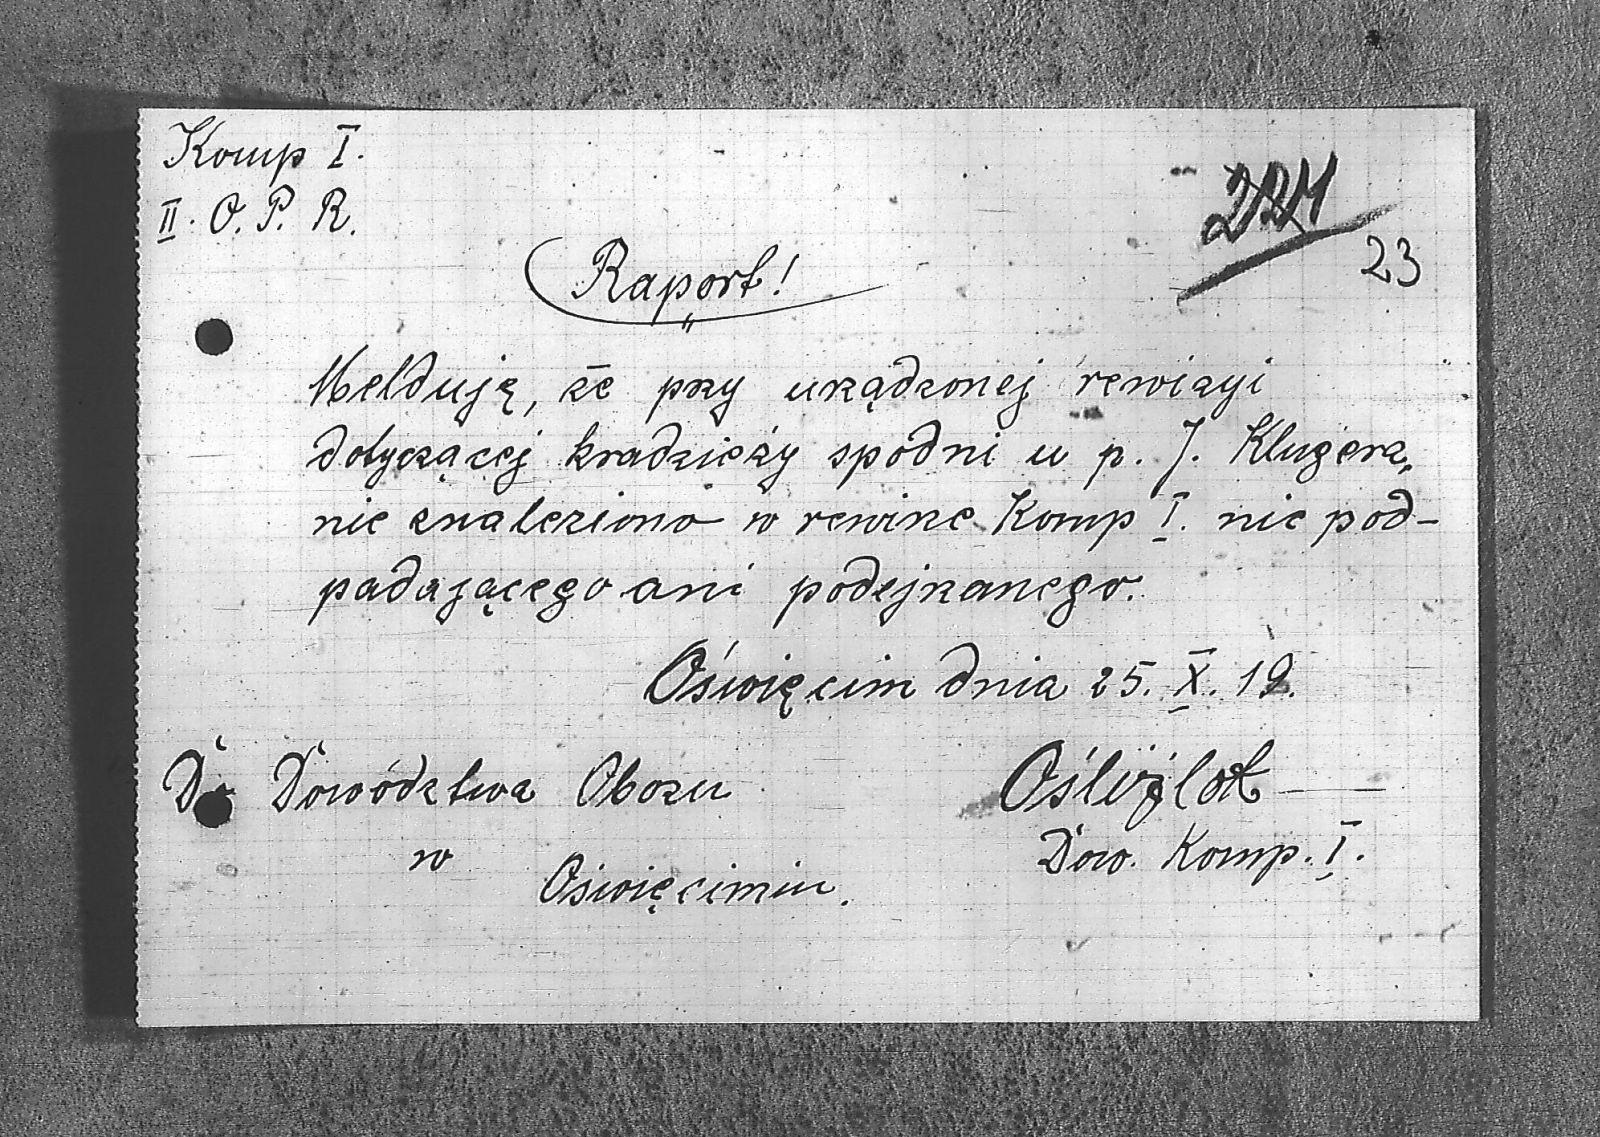 Komp I.
II. O. P. R.
23
Raport!
Melduję, że przy urządzonej rewizyi
dotyczącej kradzieży spodni u p. J. Klugera,
nie znaleziono w rewirze Komp I. nic pod-
padającego ani podejrzanego.
Oświęcim dnia 25. X. 19.
Do Dowództwa Obozu
w
Oświęcimiu.
Oślizlok
Dow. Komp. I.